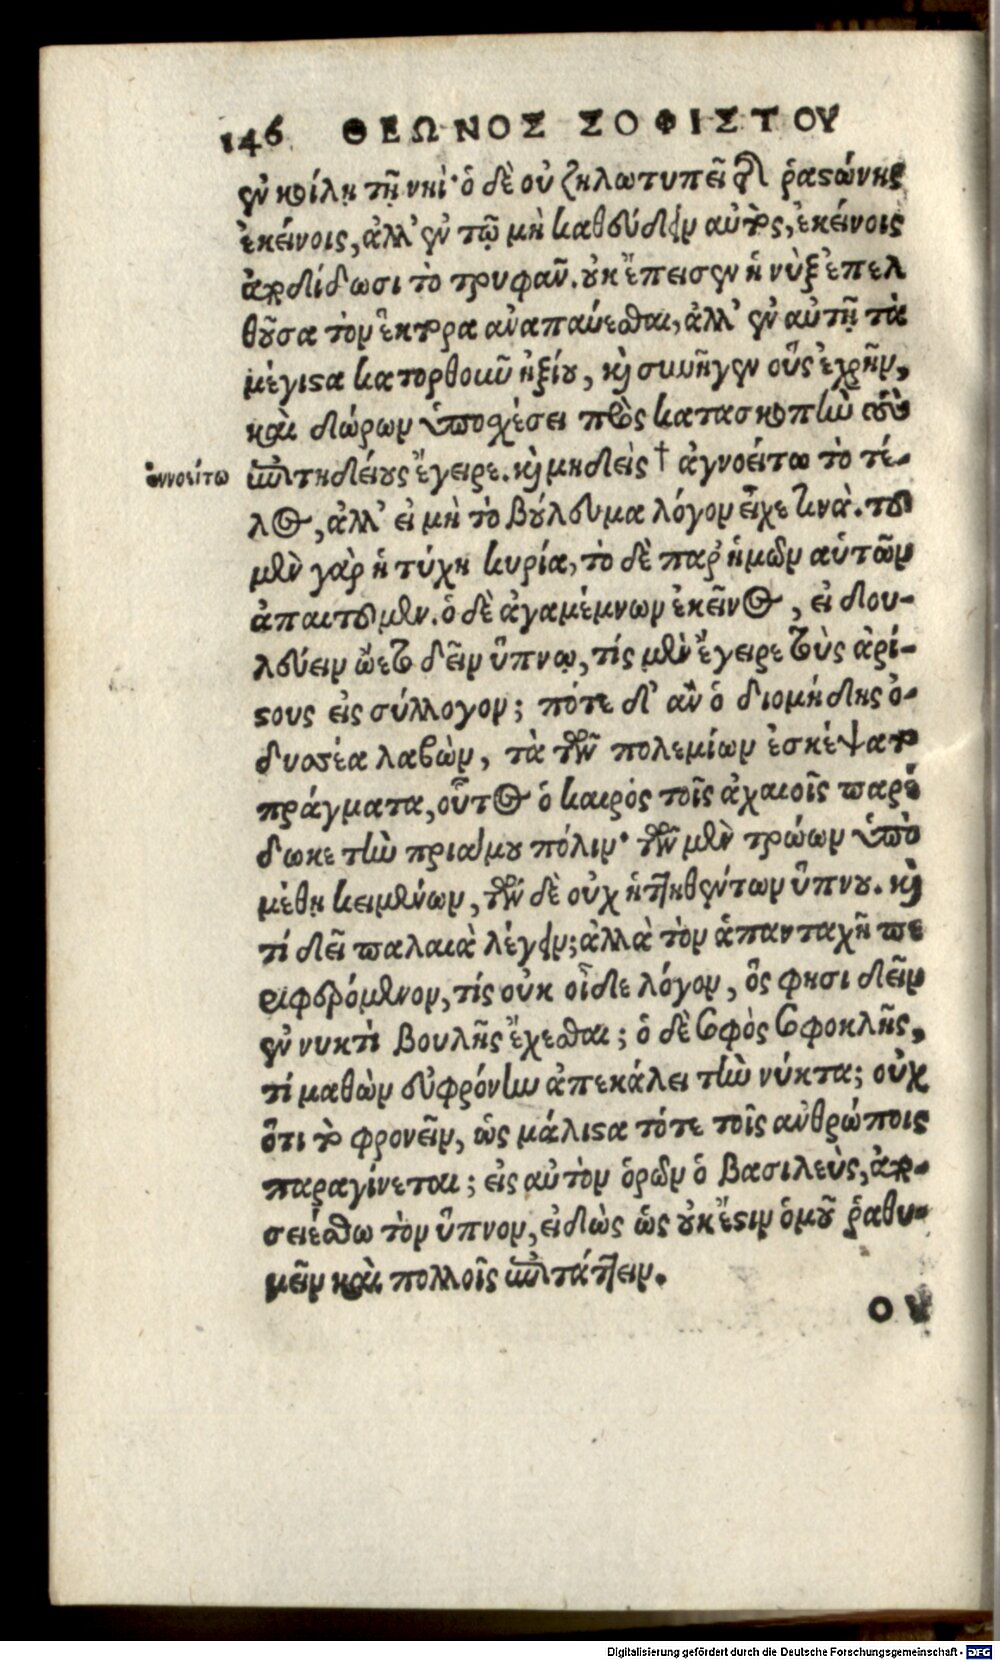 146 ΘΕΩΝΟΣ ΣΟΦΙΣΤΟΥ
ἐν κοίλῃ τῇ νηί· ὁ δὲ οὐ ζηλοτυπεῖ τῆς ῥαστώνης
ἐκείνοις, ἀλλ' ἐν τῷ μὴ καθεύδειν αὐτὸς, ἐκείνοις
ἀποδίδωσι τὸ τρυφᾶν. οὐκ ἔπεισεν ἡ νὺξ ἐπελ
θοῦσα τὸν ἕκτορα ἀναπαύεσθαι, ἀλλ' ἐν αὐτῇ τὰ
μέγιστα κατορθοῦν ἠξίου, καὶ συνῆγεν οὓς ἐχρῆν,
καὶ δώρων ὑποσχέσει πρὸς κατασκοπὴν τοὺς
ἐπιτηδείους ἔγειρε. καὶ μηδεὶς † ἀγνοείτω τὸ τέ-
ἐννοείτω
λος, ἀλλ' εἰ μὴ τὸ βούλευμα λόγον εἶχε τινὰ. τοῦ
μὲν γὰρ ἡ τύχη κυρία, τὸ δὲ παρ' ἡμῶν αὐτῶν
ἀπαιτοῦμεν. ὁ δὲ ἀγαμέμνων ἐκεῖνος, εἰ δου-
λεύειν ᾤετο δεῖν ὕπνῳ, τίς μὲν ἔγειρε τοὺς ἀρί-
στους εἰς σύλλογον; πότε δ' ἂν ὁ διομήδης ὀ-
δυσσέα λαβὼν, τὰ τῶν πολεμίων ἐσκέψατο
πράγματα, οὗτος ὁ καιρὸς τοῖς ἀχαιοῖς παρέ
δωκε τὴν πριάμου πόλιν· τῶν μὲν τρώων ὑπὸ
μέθῃ κειμένων, τῶν δὲ οὐχ ἡττηθέντων ὕπνου. καὶ
τί δεῖ παλαιὰ λέγειν; ἀλλὰ τὸν ἁπανταχῆ πε
ριφερόμενον, τίς οὐκ οἶδε λόγον, ὅς φησι δεῖν
ἐν νυκτὶ βουλῆς ἔχεσθαι; ὁ δὲ σοφὸς σοφοκλῆς,
τί μαθὼν εὐφρόνην ἀπεκάλει τὴν νύκτα; οὐχ
ὅτι τὸ φρονεῖν, ὡς μάλιστα τότε τοῖς ἀνθρώποις
παραγίνεται; εἰς αὐτὸν ὁρῶν ὁ βασιλεὺς, ἀπο-
σειέσθω τὸν ὕπνον, εἰδὼς ὡς οὐκ ἔστιν ὁμοῦ ῥαθυ-
μεῖν καὶ πολλοῖς ἐπιτάττειν.
ΟΥ
Digitalisierung gefördert durch die Deutsche Forschungsgemeinschaft - DFG